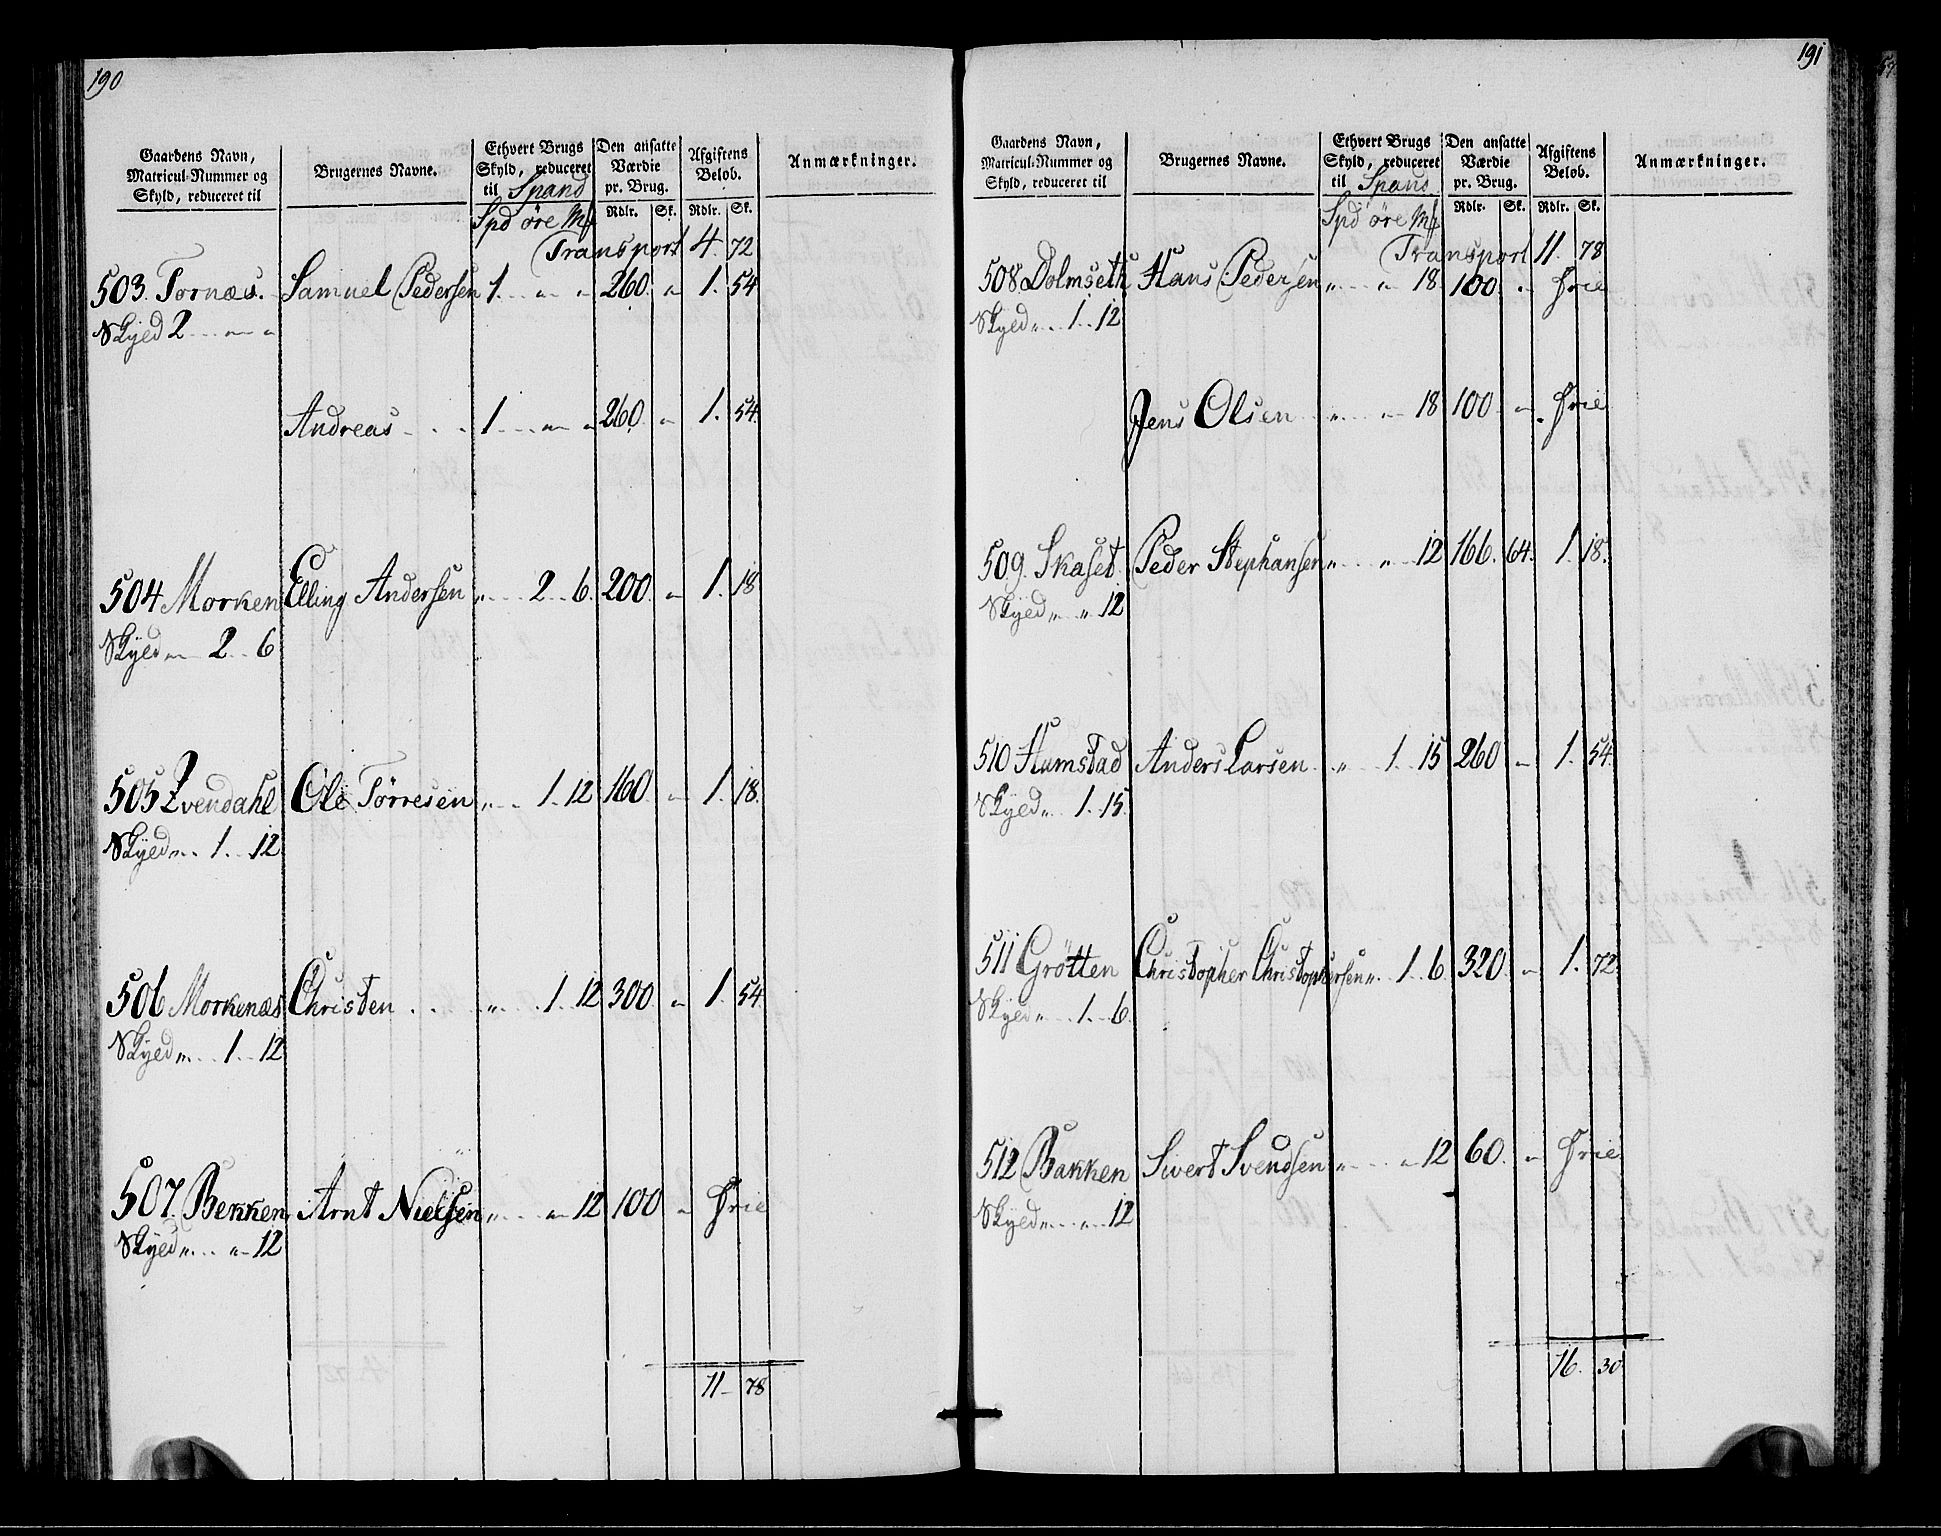 190
Gaardens Navn, Matricul-Nummer og Skyld, reduceret til | Brugernes Navne. | Ethvert Brugs Skyld, reduceret til Spand | Den ansatte Værdie pr. Brug. | Afgiftens Beløb. | Anmærkninger.
Spd öre Mf | Rdlr. | Sk. | Rdlr. | Sk.
Transport 4. 72
503. Tornæs. Samuel Pedersen 1 . . „ „ 260. „ 1. 54
Skyed 2 . . . „ „
Andreas . . . 1 . . . „ „ 260. „ 1. 54.
504 Morken Elling Andersen „ . . 2 . . 6. 200. „ 1. 18
Skyed „ 2 . . 6
505 Evendahl Ole Törresen „ . . 1. 12 160. „ 1. 18.
Skyed „ . 1 . . 12
506 Morkenæs Christen . . . „ . . 1. 12 300. „ 1. 54.
Skyed „ . . 1 . . 12
507. Bekken, Arnt Nielsen „ . . „ 12 100 „ Frie
Skyed „ . . „ 12
11 78
191
Gaardens Navn, Matricul-Nummer og Skyld, reduceret til | Brugernes Navne. | Ethvert Brugs Skyld, reduceret til Spans | Den ansatte Værdie pr. Brug. | Afgiftens Beløb. | Anmærkninger.
Spd öre Mf | Rdlr. | Sk. | Rdlr. | Sk.
Transport 11. 78
508 Dolmseth Hans Pedersen „ . . „ 18 100. „ Frie
Skyed „ . 1 . . 12
Jens Olsen „ . . „ 18 100. „ Frie
509. Skaset. Peder Stephansen „ . . „ 12 166. 64. 1. 18.
Skyed „ „ 12
510 Humstad Anders Larsen „ 1 15 260 „ 1. 54
Skyed „ . 1. 15.
511 Grötten Christopher Christophersen „ . 1 . 6. 320. „ 1. 72.
Skyed „ . . 1 . . 6.
512 Bakken Sivert Svendsen „ . . . „ 12 60. „ Frie
Skyed „ . . „ 12
16. 30